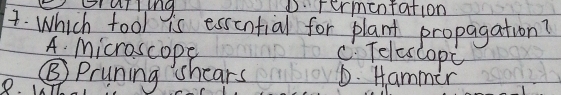 Grafting D. Fermentation
7. Which tool is essential for plant propagation?
A. Microscope C. Telescope
B Pruning shears D. Hammer
8. What is